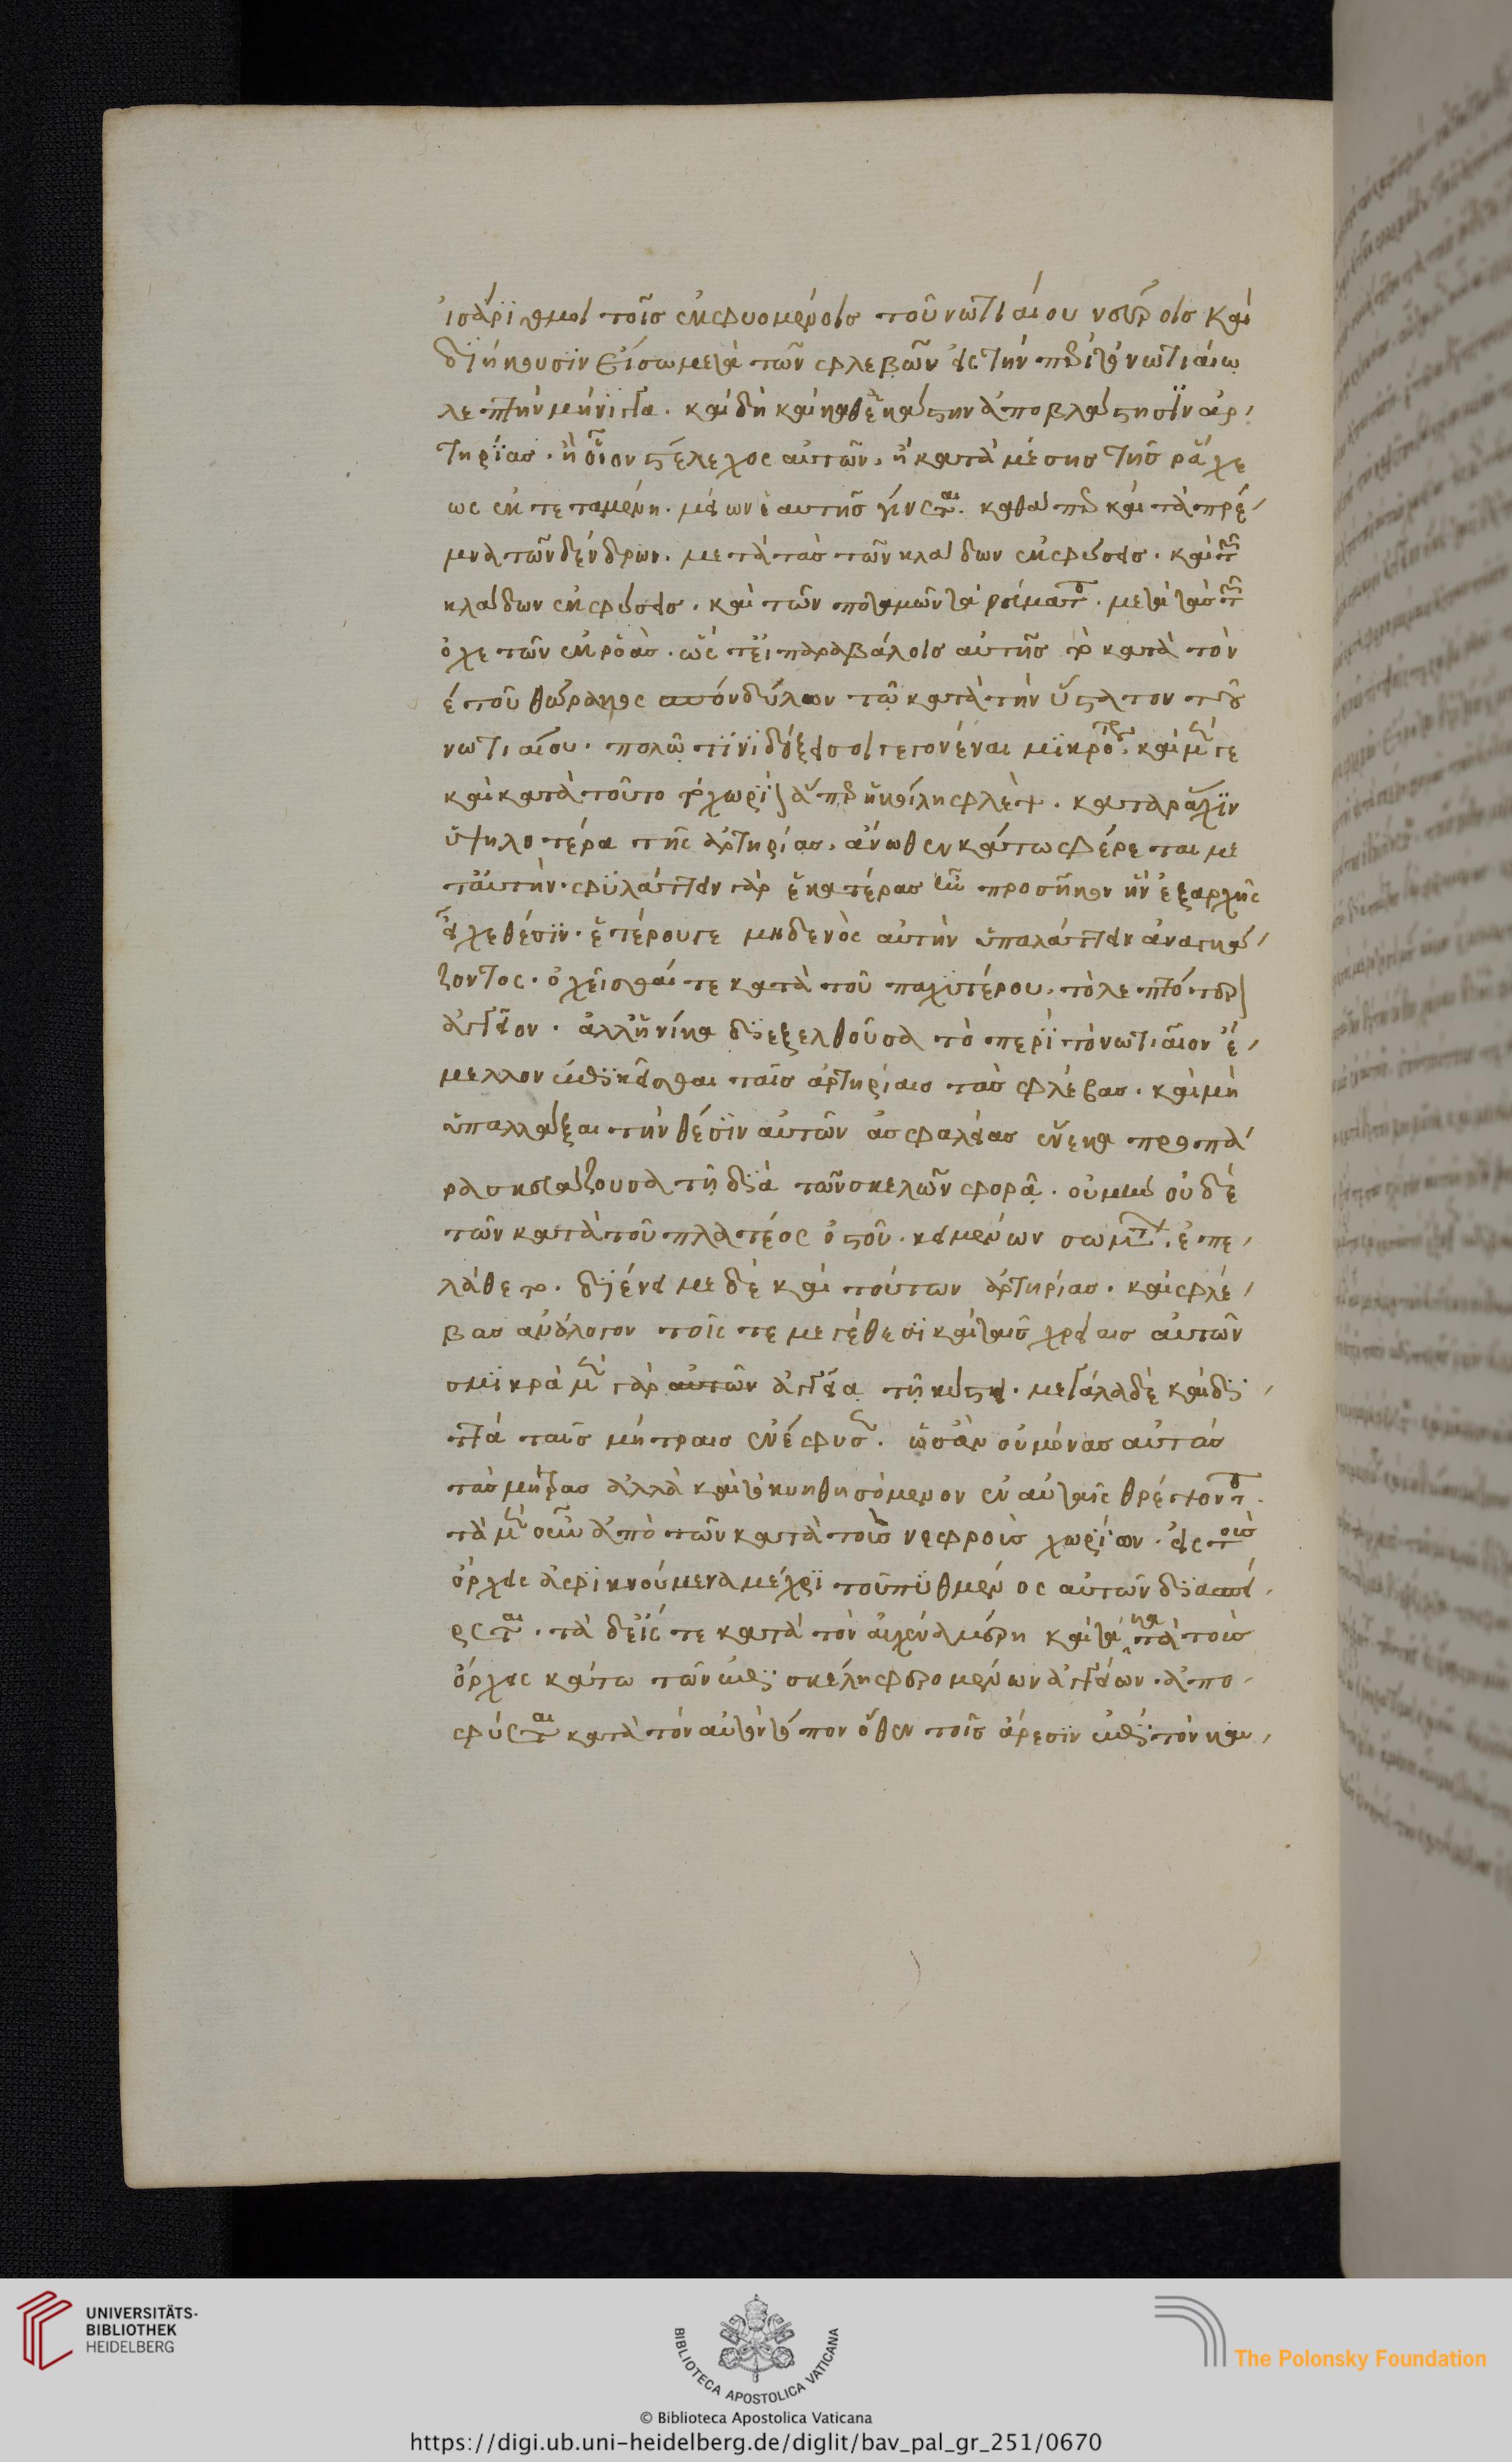 ἰσάριθμοι τοῖς ἐκφυομένοις τοῦ νωτιαίου νεύροις καὶ
διήκουσιν εἴσω μετὰ τῶν φλεβῶν εἰς τὴν περὶ τῷ νωτιαίῳ
λεπτὴν μήνιγγα. καὶ δὴ καὶ καθ' ἑκάστην ἀποβλάστησιν ἀρ
τηρίας. ἡ οἷον στέλεχος αὐτῶν. ἡ κατὰ μέσης τῆς ράχε
ως ἐκτεταμένη. μείων ἑαυτῆς γίνεται. καθάπερ καὶ τὰ πρέ
μνα τῶν δένδρων. μετὰ τὰς τῶν κλάδων ἐκφύσεις. καὶ τῶν
κλάδων ἐκφύσεις. καὶ τῶν ποταμῶν τὰ ρεύματα. μετὰ τὰς τῶν
ὀχετῶν ἐκροάς. ὥστ' εἰ παραβάλοις αὐτῆς τὸ κατὰ τὸν
ε τοῦ θώρακος σπόνδυλον τῷ κατὰ τὴν ὕστατον τοῦ
νωτιαίου. πολλῷ τινι δόξει σοι γεγονέναι μικρότερον. καὶ μέν γε
καὶ κατὰ τοῦτο τὸ χωρίον ἅπερ ἡ κοίλη φλὲψ. κατὰ ράχιν
ὑψηλοτέρα τῆς ἀρτηρίας. ἄνωθεν κάτω φέρεται με
τ' αὐτὴν. φυλάττειν γὰρ ἑκατέρας ἦν προσῆκον ἣν ἐξ ἀρχῆς
εἶχε θέσιν. ἑτέρου γε μηδενὸς αὐτὴν ὑπαλάττειν ἀναγκά
ζοντος. ὀχεῖσθαί τε κατὰ τοῦ παχυτέρου. τὸ λεπτότερον
ἀγγεῖον. ἀλλ' ἡνίκα διεξελθοῦσα τὸ περὶ τὸ νωτιαῖον ἔ
μελλον ἐπικεῖσθαι ταῖς ἀρτηρίαις τὰς φλέβας. καὶ μὴ
ὑπαλλάξαι τὴν θέσιν αὐτῶν ἀσφαλείας ἕνεκα προπα
ρασκευάζουσα τῇ διὰ τῶν σκελῶν φορᾷ. οὐ μὴν οὐδὲ
τῶν κατὰ τοῦ πλατέος ὀστοῦ. κειμένων σωμάτων. ἐπε
λάθετο. διένειμε δὲ καὶ τούτων ἀρτηρίας. καὶ φλέ
βας ἀνάλογον τοῖς τε μεγέθεσι καὶ ταῖς χρείαις αὐτῶν
σμικρὰ μὲν γὰρ αὐτῶν ἀγγεῖα τῇ κύστει. μεγάλα δὲ καὶ δι
ττὰ ταῖς μήτραις ἐνέφυσεν. ὡς ἂν οὐ μόνας αὐτάς
τὰς μήτρας ἀλλὰ καὶ τὸ κυηθησόμενον ἐν αὐταῖς θρέψοντα.
τὰ μὲν οὖν ἀπὸ τῶν κατὰ τοὺς νεφροὺς χωρίων. εἰς τοὺς
ὄρχεις ἀφικνούμενα μέχρι τοῦ πυθμένος αὐτῶν διασπεί
ρεται. τὰ δ' εἴς τε κατὰ τὸν αὐχένα μέρη καὶ τὰ κατὰ τοὺς
ὄρχεις κάτω τῶν ἐπὶ σκέλη φερομένων ἀγγείων. ἀπο
φύεται κατὰ τὸν αὐτὸν τόπον ὅθεν τοῖς ἄρεσιν ἐπὶ τὸν καυ
UNIVERSITÄTS-
BIBLIOTHEK
HEIDELBERG
BIBLIOTECA APOSTOLICA VATICANA
The Polonsky Foundation
© Biblioteca Apostolica Vaticana
https://digi.ub.uni-heidelberg.de/diglit/bav_pal_gr_251/0670